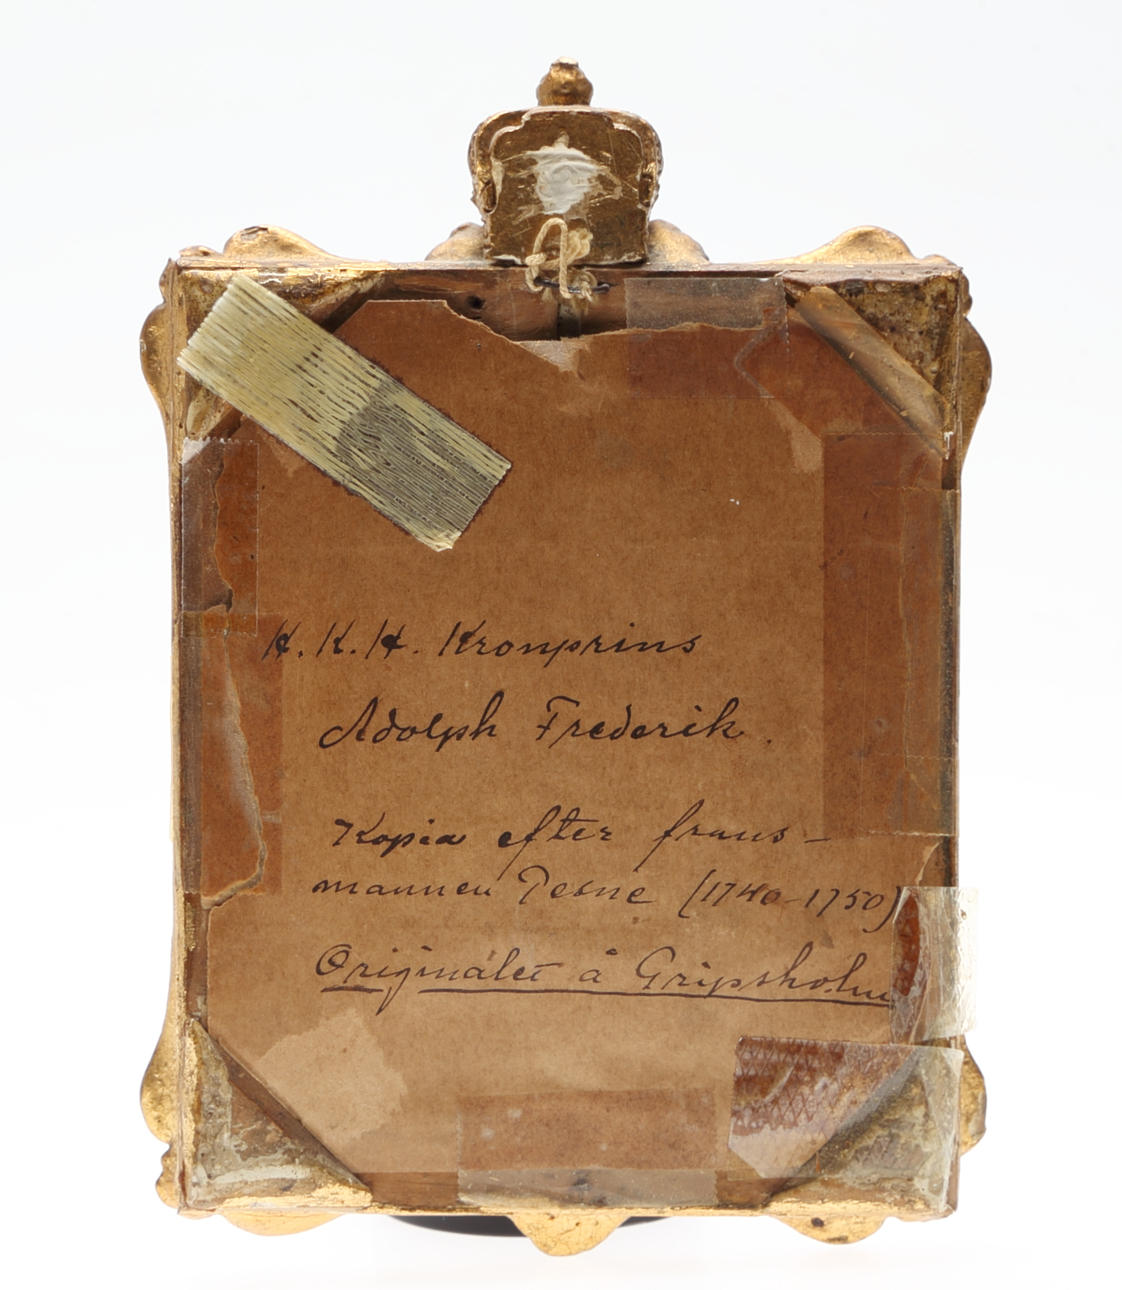 H. K. H. Kronprins
Adolph Frederik.
Kopia efter frans-
mannen Pesne (1740-1750)
Originalet å Gripsholm